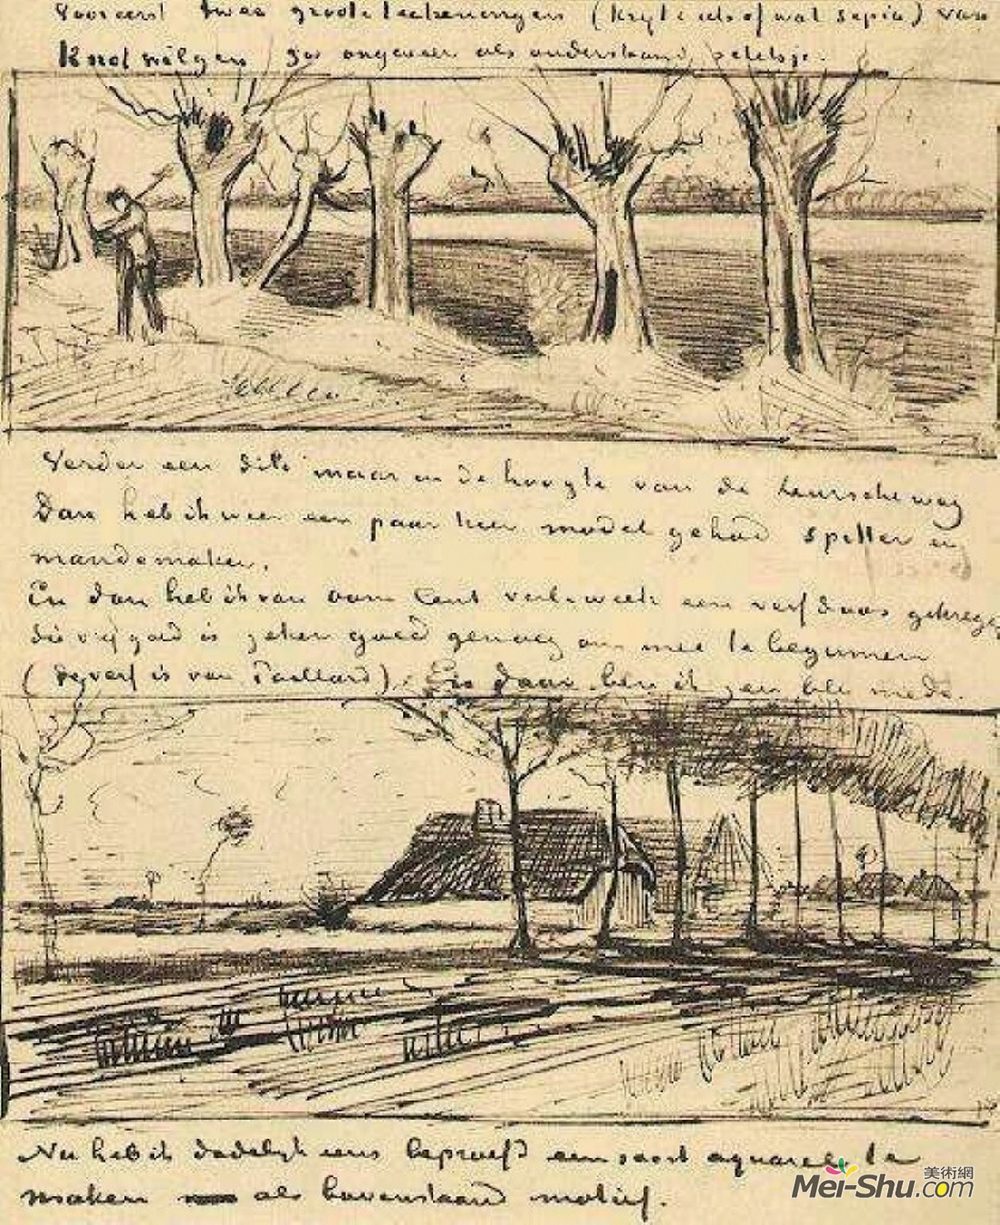 Vooreerst twee groote teekeningen (krijt & iets of wat sepia) van
Knotwilgen zoo ongeveer als onderstaand schetsje.
Verder een dito maar in de hoogte van de Leursche weg
Dan heb ik weer een paar keer model gehad spitter en
mandemaker.
En dan heb ik van oom Cent verl. week een verfdoos gekregen
die vrij goed is zeker goed genoeg om mee te beginnen
(de verf is van Paillard). En daar ben ik zeer blij mede.
Nu heb ik dadelijk eens beproefd een soort aquarel te
maken als bovenstaand motief.
美術網
Mei-Shu.com